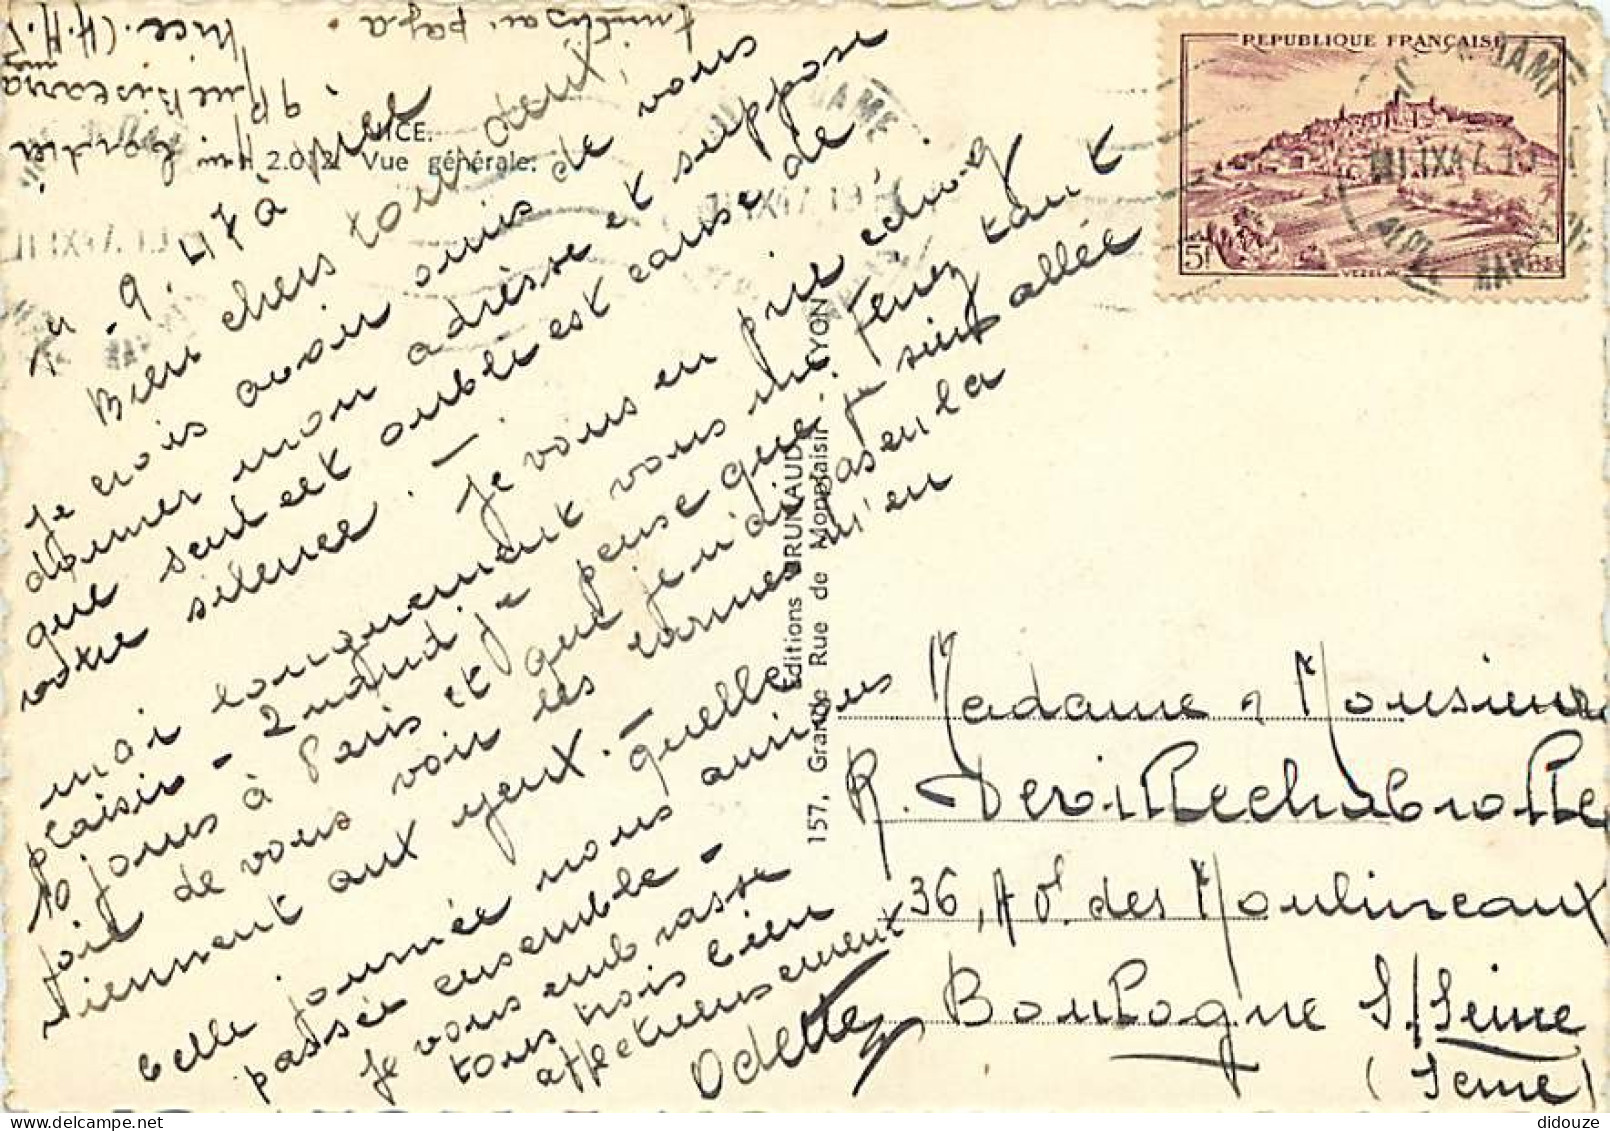 11-9-47 à
Bien chers tous deux,
Je crois avoir omis de vous
donner mon adresse et suppose
que seul cet oubli est cause de
votre silence. - Je vous en prie
longuement vous me ferez tant
plaisir - quand je pense que je suis allée
10 jours à Paris et que je n'ai pas eu la
joie de vous voir les larmes m'en
viennent aux yeux. - quelle
belle journée nous aurions
passée ensemble -
Je vous embrasse
tous trois bien
affectueusement
Odette
NICE.
2.012. Vue générale.
Éditions BRUNAUD
157, Grande Rue de Monplaisir - LYON
REPUBLIQUE FRANÇAISE
5f
VEZELAY
Madame & Monsieur
R.
36, Av. des Moulineaux
Boulogne s/ Seine
(Seine)
didouze